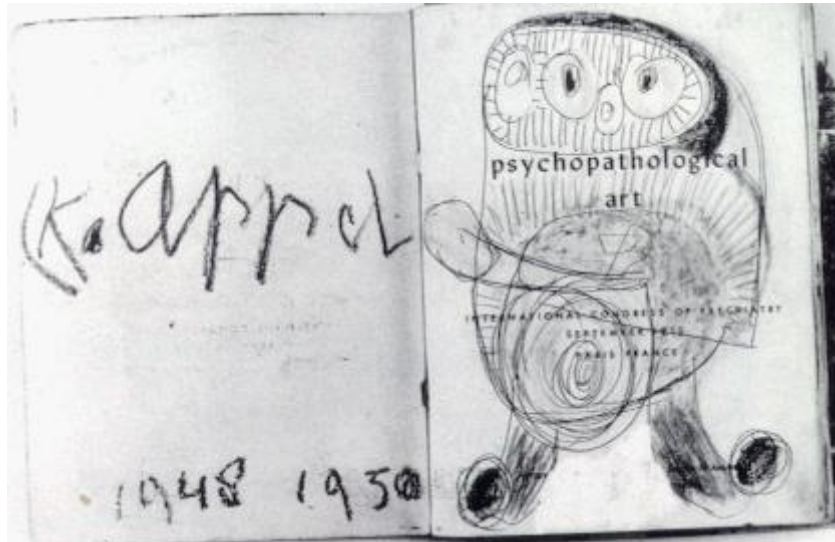 K. Appel
1948 1950
psychopathological
art
INTERNATIONAL CONGRESS OF PSYCHIATRY
SEPTEMBER 1950
PARIS FRANCE